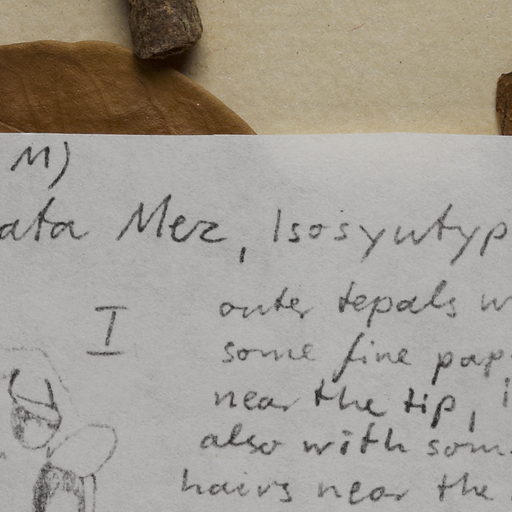 M)
ata Mez, Isosyntyp
I
outer tepals w
some fine pap
near the tip, i
also with som
hairs near the